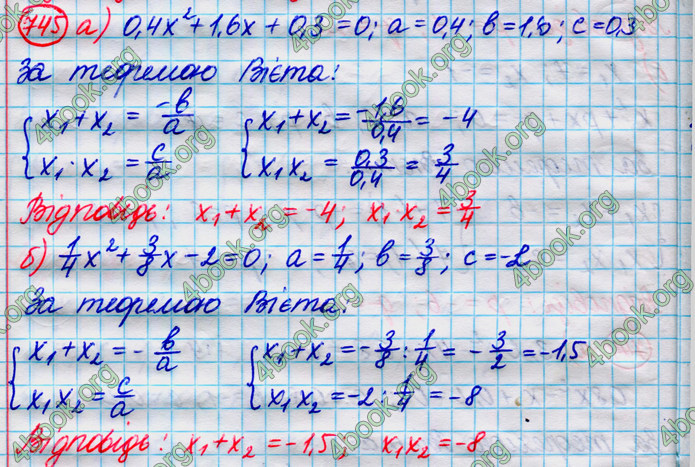 745 а) 0,4x² + 1,6x + 0,3 = 0; a = 0,4; b = 1,6; c = 0,3
За теоремою Вієта:
{ x₁ + x₂ = -b/a { x₁ + x₂ = -1,6/0,4 = -4
{ x₁ · x₂ = c/a { x₁ x₂ = 0,3/0,4 = 3/4
Відповідь: x₁ + x₂ = -4; x₁ x₂ = 3/4
б) 1/4 x² + 3/8 x - 2 = 0; a = 1/4; b = 3/8; c = -2
За теоремою Вієта:
{ x₁ + x₂ = -b/a { x₁ + x₂ = -3/8 : 1/4 = -3/2 = -1,5
{ x₁ x₂ = c/a { x₁ x₂ = -2 : 1/4 = -8
Відповідь: x₁ + x₂ = -1,5; x₁ x₂ = -8
4book.org